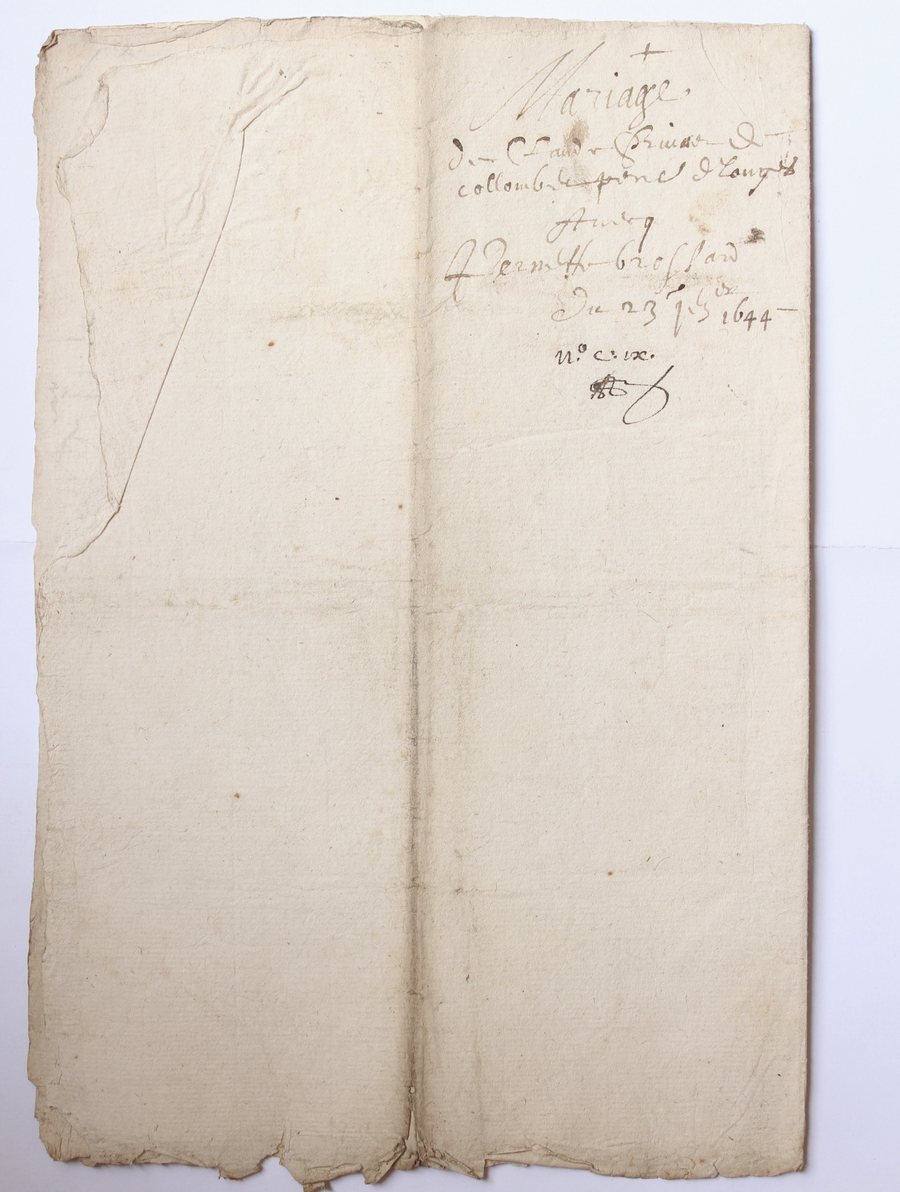 +
Mariage.
de Claude de
collombe d longes
Avecq
Pernette brossard
Du 23 1644
n.º c. ix.